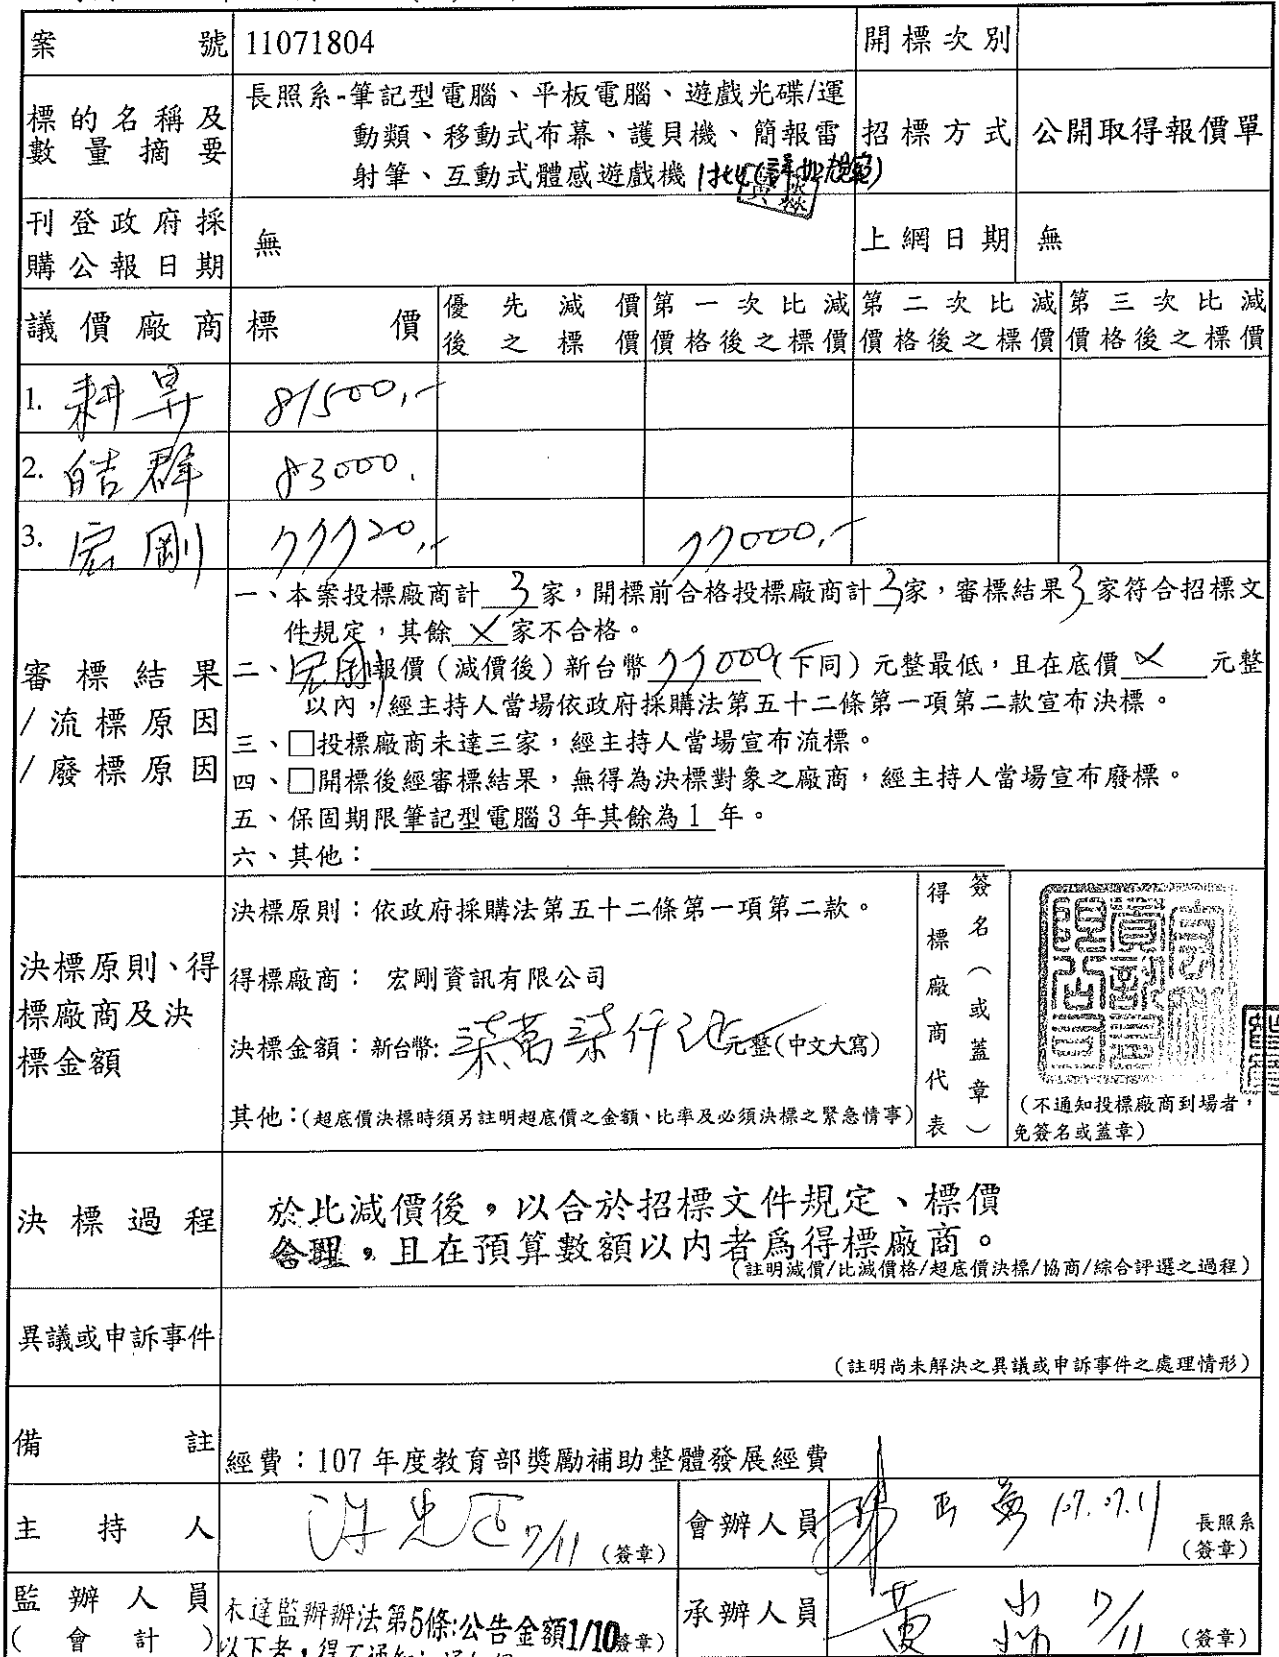 案號 11071804 開標次別
標的名稱及數量摘要
長照系-筆記型電腦、平板電腦、遊戲光碟/運
動類、移動式布幕、護貝機、簡報雷
射筆、互動式體感遊戲機 1批(詳如規範)
招標方式 公開取得報價單
刊登政府採購公報日期 無 上網日期 無
議價廠商 標價 優先減價後之標價 第一次比減價格後之標價 第二次比減價格後之標價 第三次比減價格後之標價
1. 耕昇 81500,-
2. 皓群 83000.
3. 宏剛 77720,- 77000,-
審標結果
/流標原因
/廢標原因
一、本案投標廠商計 3 家,開標前合格投標廠商計 3 家,審標結果 3 家符合招標文
件規定,其餘 X 家不合格。
二、宏剛報價(減價後)新台幣 77000 (下同)元整最低,且在底價 X 元整
以內,經主持人當場依政府採購法第五十二條第一項第二款宣布決標。
三、□投標廠商未達三家,經主持人當場宣布流標。
四、□開標後經審標結果,無得為決標對象之廠商,經主持人當場宣布廢標。
五、保固期限筆記型電腦3年其餘為1 年。
六、其他:
決標原則、得
標廠商及決
標金額
決標原則:依政府採購法第五十二條第一項第二款。
得標廠商: 宏剛資訊有限公司
決標金額:新台幣: 柒萬柒仟元元整(中文大寫)
其他:(超底價決標時須另註明超底價之金額、比率及必須決標之緊急情事)
得標廠商代表
簽名(或蓋章)
(不通知投標廠商到場者,
免簽名或蓋章)
決標過程
於比減價後,以合於招標文件規定、標價
合理,且在預算數額以內者為得標廠商。
(註明減價/比減價格/超底價決標/協商/綜合評選之過程)
異議或申訴事件
(註明尚未解決之異議或申訴事件之處理情形)
備註 經費:107 年度教育部獎勵補助整體發展經費
主持人 7/11 (簽章) 會辦人員 107.07.11 長照系
(簽章)
監辦人員
(會計)
未達監辦辦法第5條:公告金額1/10 簽章)
以下者,得不通知
承辦人員 黃 7/11 (簽章)